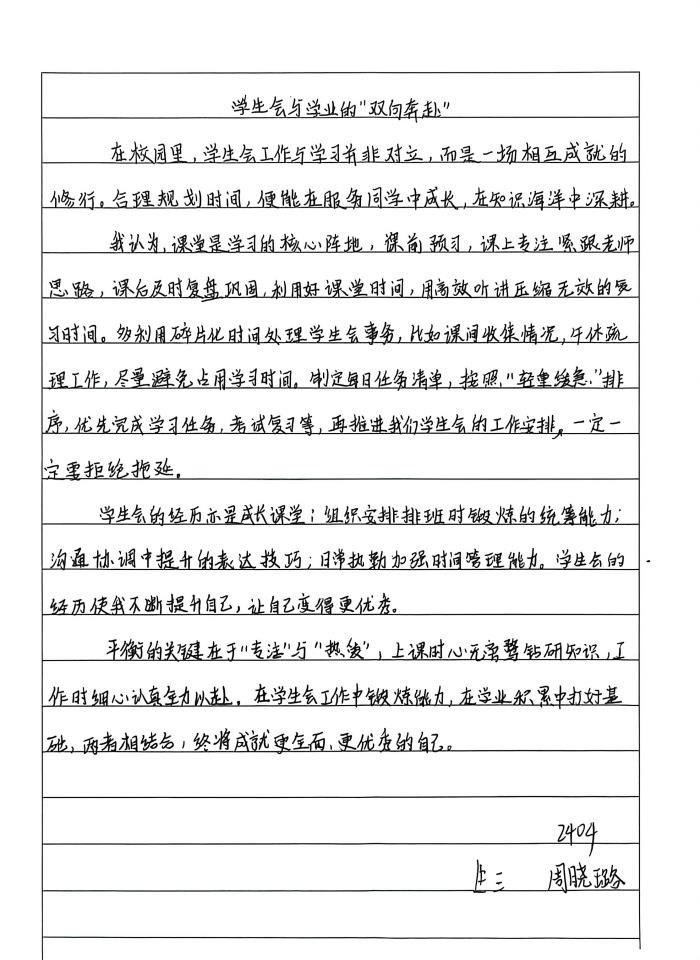 学生会与学业的"双向奔赴"
在校园里,学生会工作与学习并非对立,而是一场相互成就的
修行。合理规划时间,便能在服务同学中成长,在知识海洋中深耕。
我认为,课堂是学习的核心阵地,课前预习,课上专注紧跟老师
思路,课后及时复盘巩固,利用好课堂时间,用高效听讲压缩无效的复
习时间。多利用碎片化时间处理学生会事务,比如课间收集情况,午休疏
理工作,尽量避免占用学习时间。制定每日任务清单,按照"轻重缓急"排
序,优先完成学习任务,考试复习等,再推进我们学生会的工作安排。一定一
定要拒绝拖延。
学生会的经历亦是成长课堂;组织安排排班时锻炼的统筹能力;
沟通协调中提升的表达技巧;日常执勤加强时间管理能力。学生会的
经历使我不断提升自己,让自己变得更优秀。
平衡的关键在于"专注"与"热爱",上课时心无旁骛钻研知识,工
作时细心认真全力以赴。在学生会工作中锻炼能力,在学业积累中打好基
础,两者相结合,终将成就更全面、更优秀的自己。
2404
周晓璐